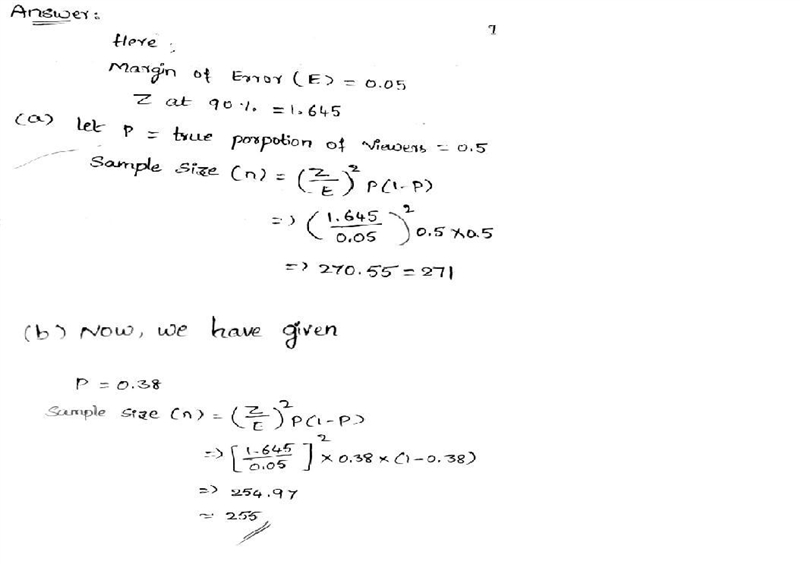 Answer:
Here:
Margin of Error (E) = 0.05
Z at 90% = 1.645
(a) let P = true porpotion of viewers = 0.5
Sample Size (n) = (Z/E)² P(1-P)
=> (1.645/0.05)² 0.5 × 0.5
=> 270.55 = 271
(b) Now, we have given
P = 0.38
Sample size (n) = (Z/E)² P(1-P)
=> [1.645/0.05]² × 0.38 × (1-0.38)
=> 254.97
≈ 255